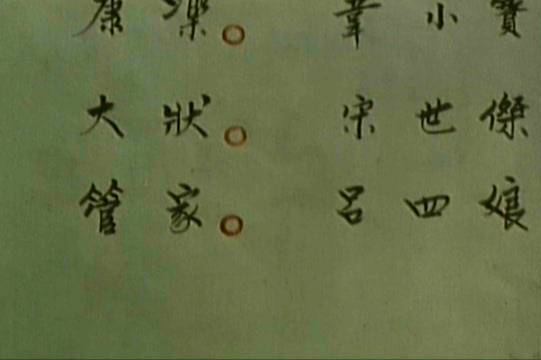 康熙。 韋小寶
大狀。 宋世傑
管家。 呂四娘